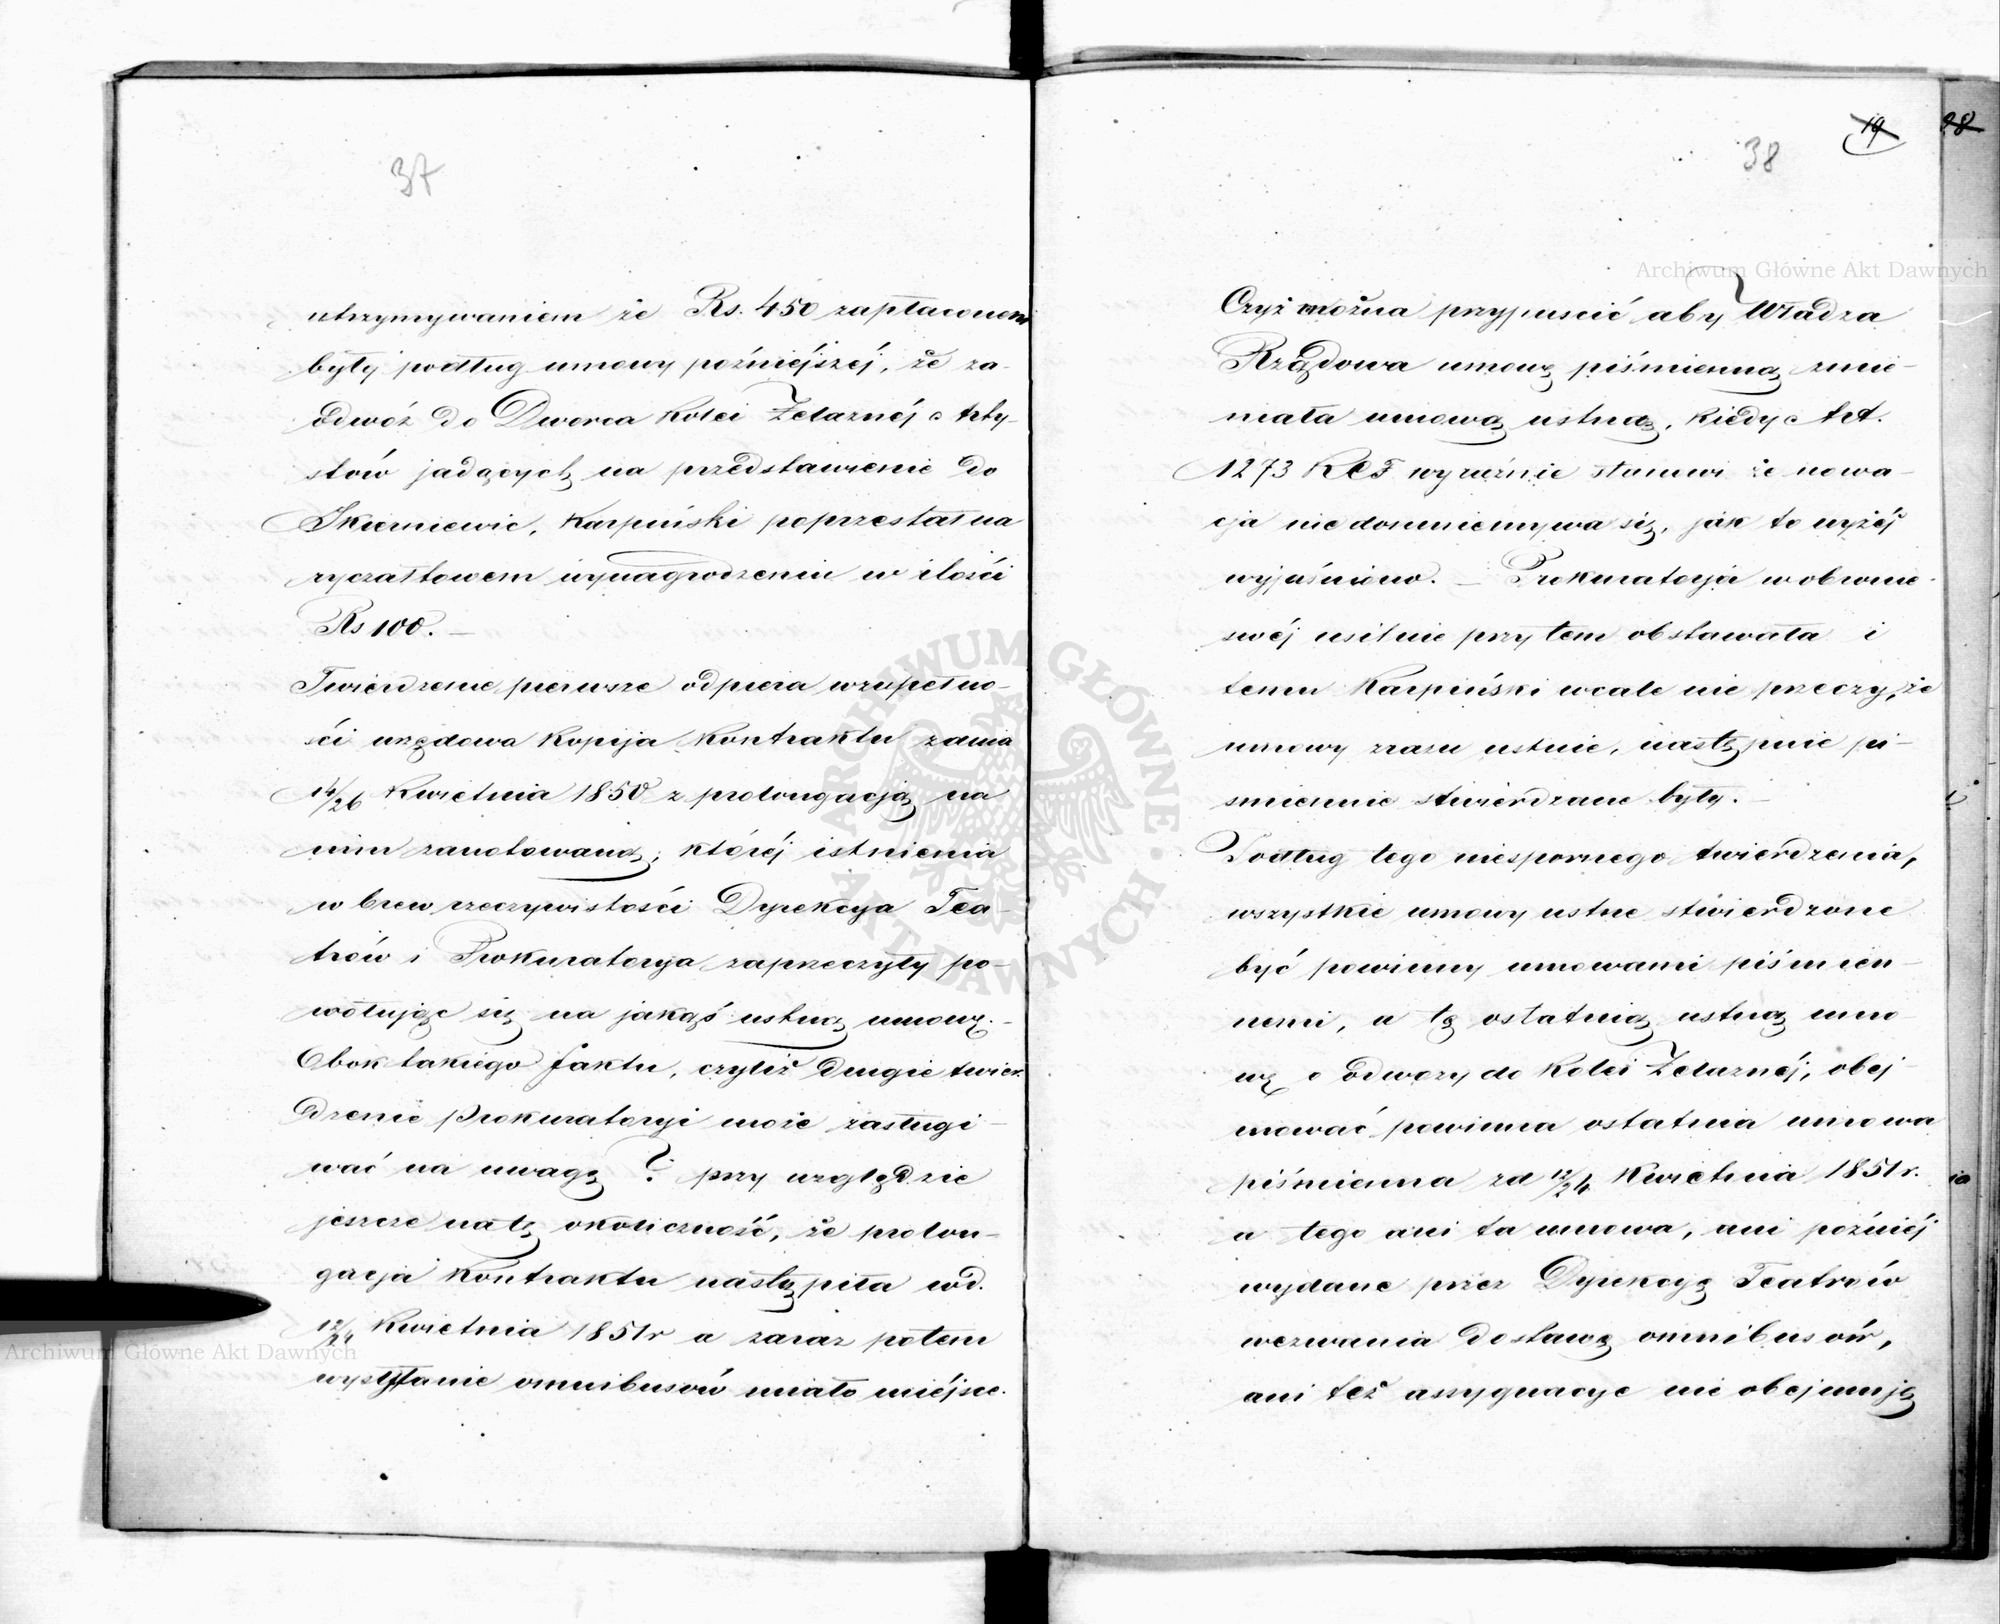 37
utrzymywaniem że Rs. 450 zapłaconem
były podług umowy poźniéjszéj, że za
odwóz do Dworca Kolei Żelaznéj arty-
stów jadących na przedstawienie do
Skierniewic, Karpiński poprzestał na
ryczałtowem wynagrodzeniu w ilości
Rs 100. —
Twierdzenie pierwsze odpiera w zupełno-
ści urzędowa Kopija Kontraktu z dnia
14/26 Kwietnia 1850 z prolongacją na
nim zanotowaną, któréj istnienia
w brew rzeczywistości Dyrekcya Tea-
trów i Prokuratorya zaprzeczyły po-
wołując się na jakąś ustną umowę. -
Obok takiego faktu, czyliż drugie twier-
dzenie Prokuratoryi może zasługi-
wać na uwagę ? przy względzie
jeszcze na tę okoliczność, że prolon-
gacja Kontraktu nastąpiła w d.
12/24 Kwietnia 1851 r a zaraz potem
wysyłanie omnibusów miało miéjsce.
38
19
38
Czyż można przypuścić aby Władza
Rządowa umowę piśmienną zmie-
niała umową ustną, Kiedy Art.
1273 KCF wyraźnie stanowi że nowa-
cja nie domniemywa się, jak to wyżéj
wyjaśniono. — Prokuratorja w obronie
swéj usilnie przy tem obstawała i
temu Karpiński wcale nie przeczy, że
umowy zrazu ustnie, następnie pi-
smiennie stwierdzane były. —
Podług tego niespornego twierdzenia,
wszystkie umowy ustne stwierdzone
być powinny umowami piśmien-
nemi, a tę ostatnią ustną umo-
wę o odwozy do Kolei Żelaznéj, obej-
mować powinna ostatnia umowa
piśmienna z d 12/24 Kwietnia 1851 r.
a tego ani ta umowa, ani poźniéj
wydane przez Dyrekcyę Teatrów
wezwania dostawę omnibusów,
ani też assygnacye nie obejmują
Archiwum Główne Akt Dawnych
Archiwum Główne Akt Dawnych
ARCHIWUM GŁÓWNE AKT DAWNYCH